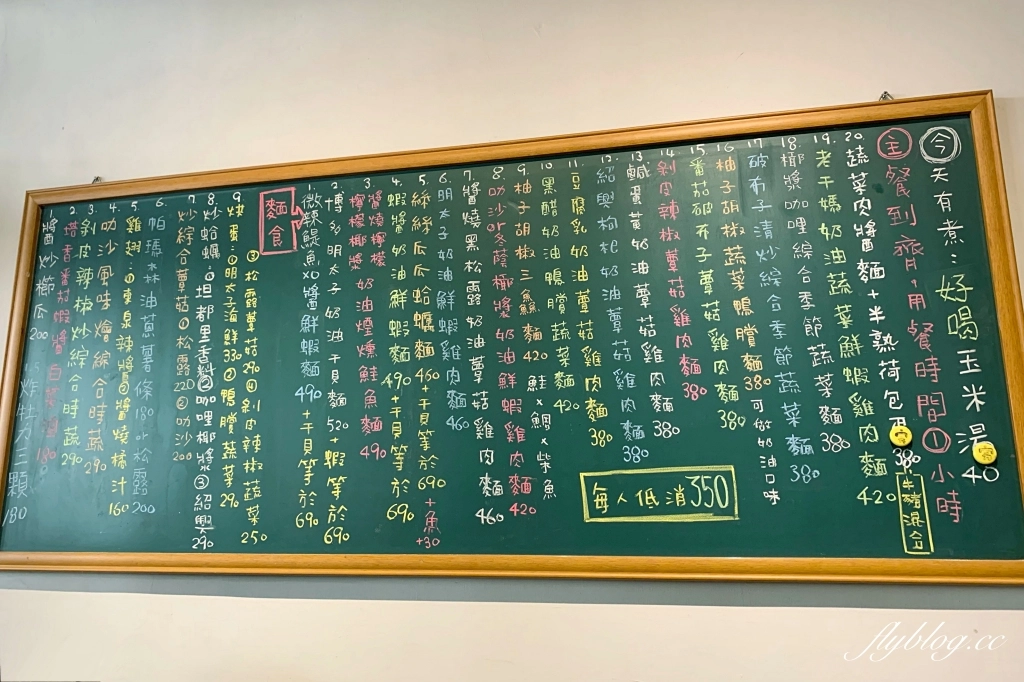 今天有煮:好喝玉米湯 40
主餐到齊,用餐時間①小時
20. 蔬菜肉醬麵+半熟荷包蛋 380
牛豬混合
19. 老干媽奶油蔬菜鮮蝦雞肉麵 420
18. 椰漿咖哩綜合季節蔬菜麵 380
17. 破布子清炒綜合季節蔬菜麵 380
16. 柚子胡椒蔬菜鴨賞麵 380 可做奶油口味
15. 番茄破芥子蕈菇雞肉麵 380
14. 剝皮辣椒蕈菇雞肉麵 380
13. 鹹蛋黃奶油蕈菇雞肉麵 380
12. 紹興枸杞奶油蕈菇雞肉麵 380
11. 豆腐乳奶油蕈菇雞肉麵 380
10. 黑醋奶油鴨賞蔬菜麵 420
9. 柚子胡椒三魚麵 420 鮭×鯛×柴魚
8. 叻沙or冬蔭椰漿奶油鮮蝦雞肉麵 420
7. 醬燒黑松露奶油蕈菇雞肉麵 460
6. 明太子奶油鮮蝦雞肉麵 460
5. 絲絲瓜瓜蛤蠣麵 460+干貝等於 690 +魚+30
4. 蝦醬奶油鮮蝦麵 490+干貝等於 690
3. 醬燒檸檬
檸檬椰漿 奶油燻鮭魚麵 490
2. 博多明太子奶油干貝麵 520+蝦等於 690
1. 微辣鯷魚XO醬鮮蝦麵 490+干貝等於 690
麵食
每人低消350
9. 烘蛋①明太子海鮮 330 ②鴨賞蔬菜 290
③松露蕈菇 290 ④剝皮辣椒蔬菜 250
8. 炒蛤蠣①坦都里香料②咖哩椰漿③紹興 290
7. 炒綜合蕈菇①松露 220 ②叻沙 200
6. 帕瑪森林油蔥薯條 180 or 松露 200
5. 雞翅①東泉辣醬②醬燒橘汁 160
4. 叻沙風味燴綜合時蔬 290
3. 剝皮辣椒炒綜合時蔬 290
2. 塔香番茄蝦醬
醬炒櫛瓜 200
三顆 180
flyblog.cc